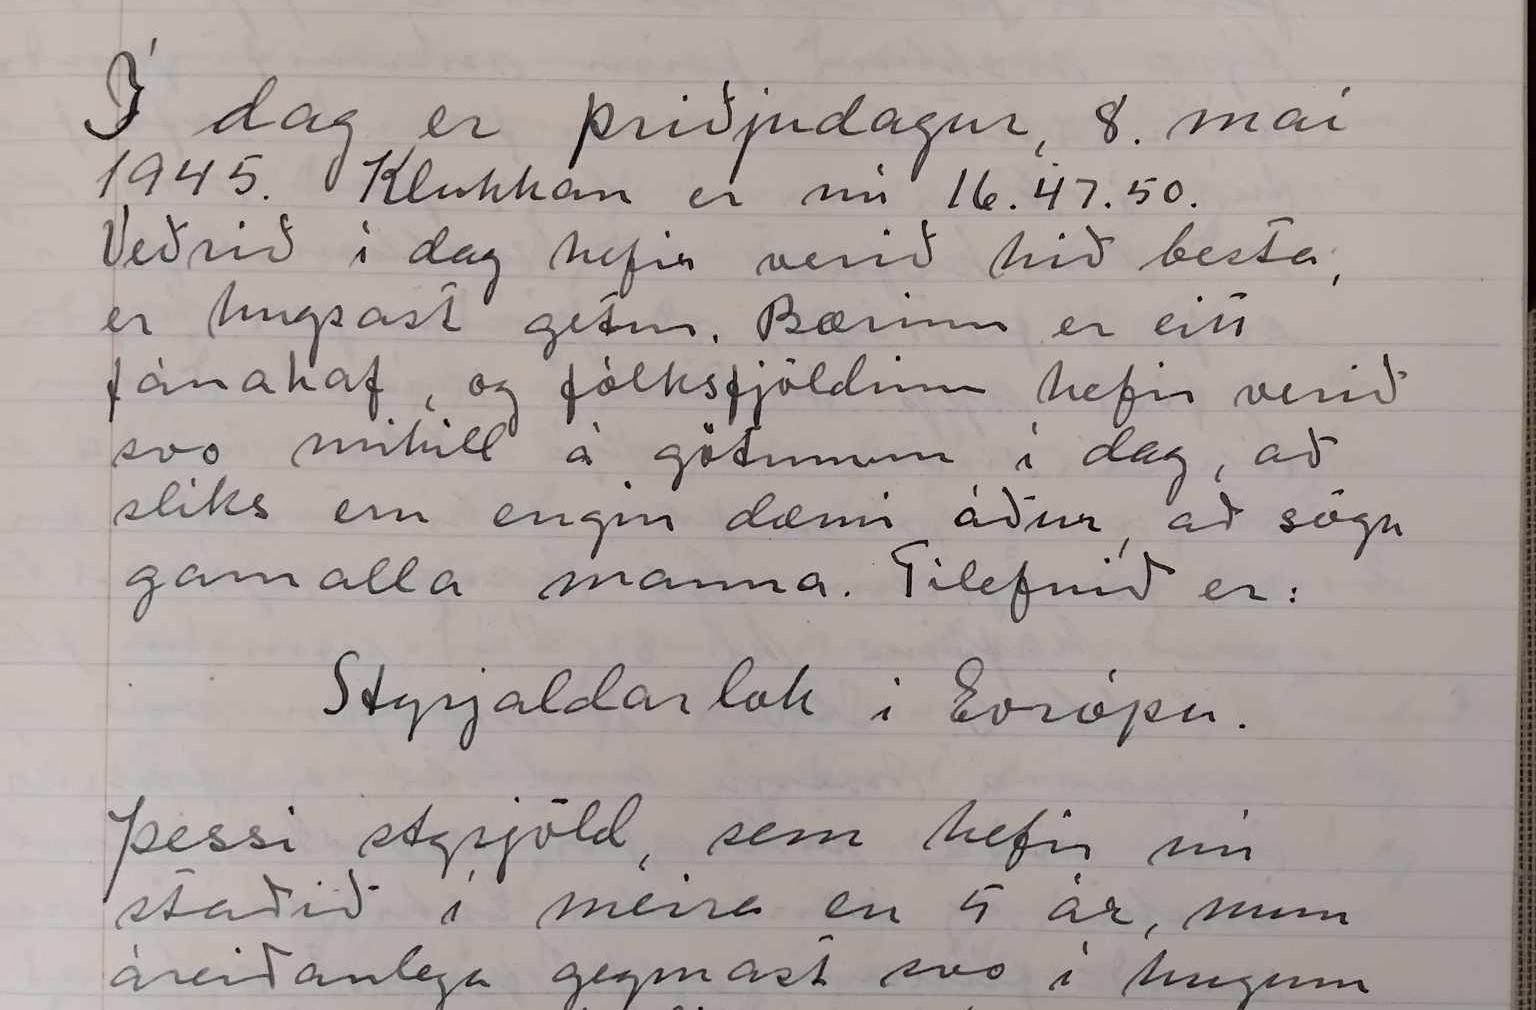 Í dag er þriðjudagur, 8. maí
1945. Klukkan er nú 16.47.50.
Veðrið í dag hefir verið hið besta,
er hugsast getur. Bærinn er eitt
fánahaf, og fólksfjöldinn hefir verið
svo mikill á götunum í dag, að
slíks eru engin dæmi áður, að sögn
gamalla manna. Tilefnið er:
Styrjaldarlok í Evrópu.
Þessi styrjöld, sem hefir nú
staðið í meira en 5 ár, mun
áreiðanlega geymast svo í hugum